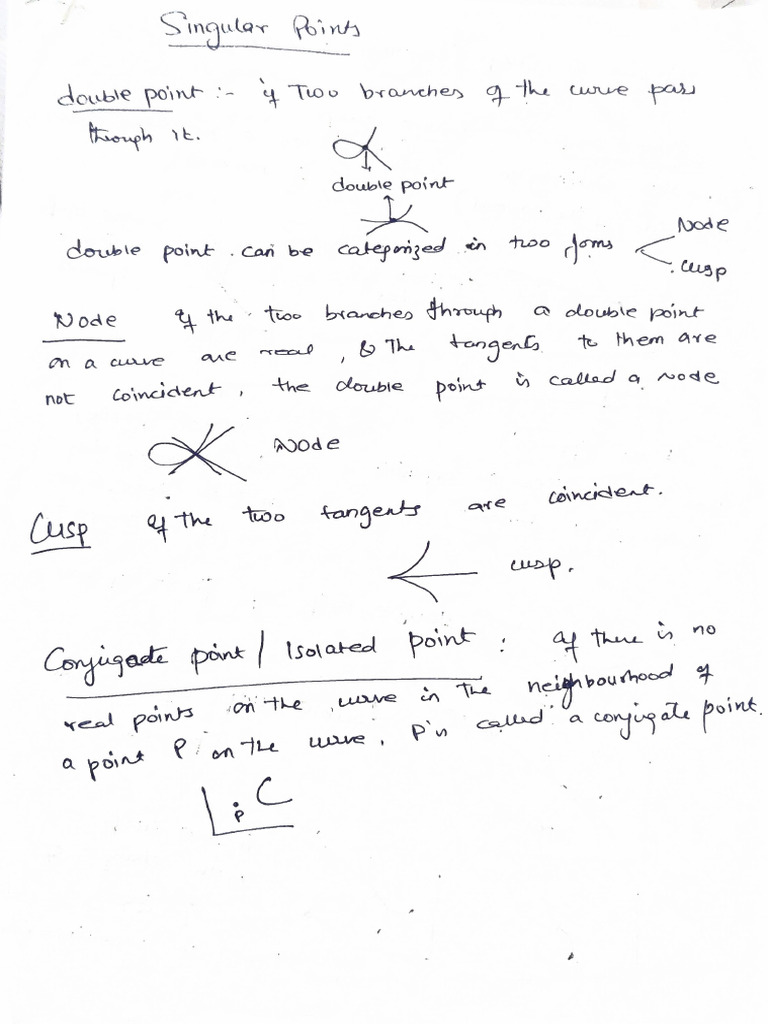 Singular Points
double point :- if Two branches of the curve pass
through it.
double point
double point can be categorized in two forms
Node
Cusp
Node If the two branches through a double point
on a curve are real, & The tangents to them are
not coincident, the double point is called a Node
Node
Cusp If the two tangents are coincident.
cusp.
Conjugate point / Isolated point : If there is no
real points on the curve in the neighbourhood of
a point P on the curve, P is called a conjugate point.
C
P